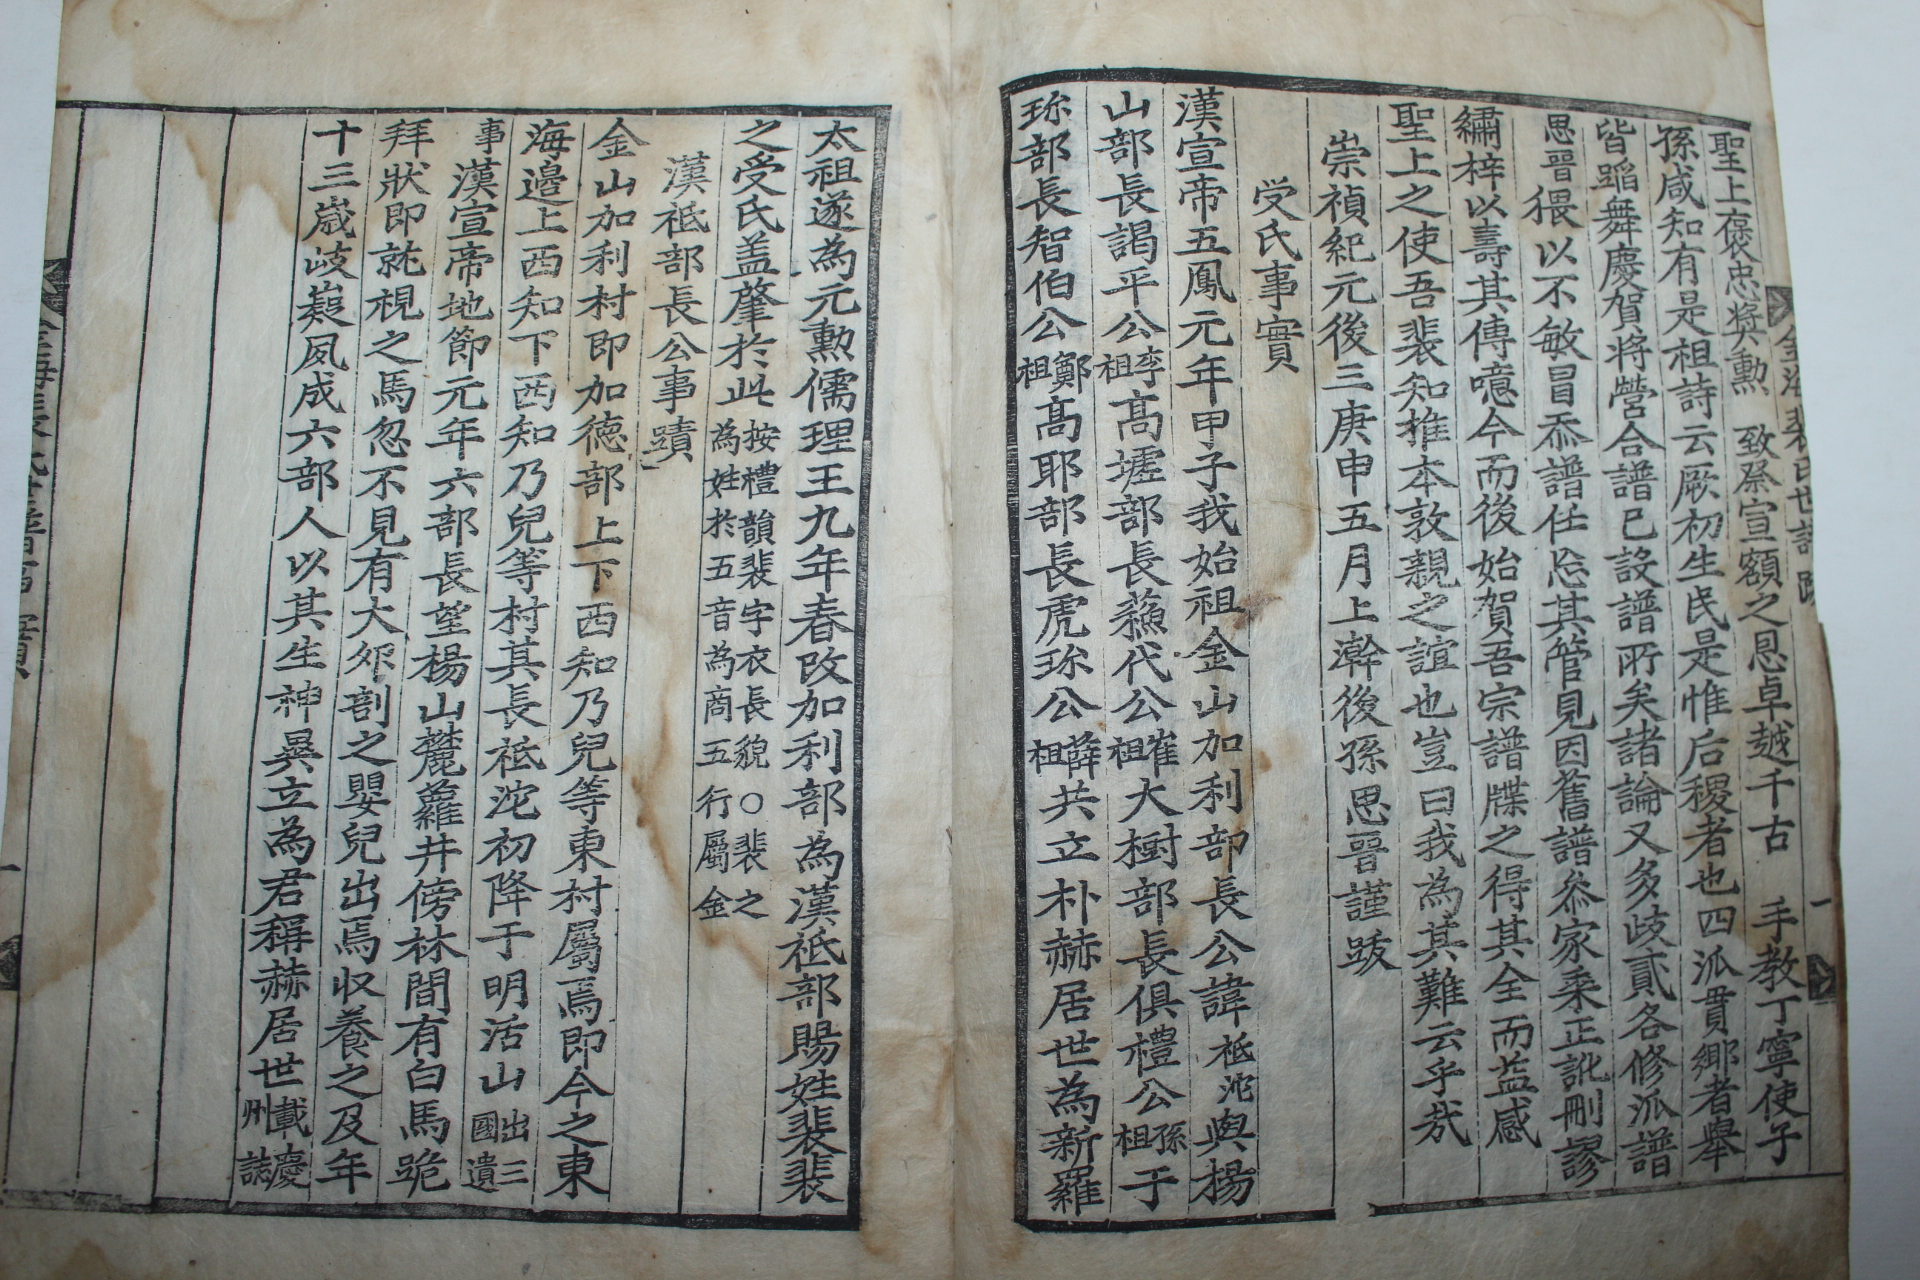 金海裴氏世譜 跋 一
聖上褒忠奬勳 致祭宣額之恩卓越千古 手教丁寧使子
孫咸知有是祖詩云厥初生民是惟后稷者也四派貫鄉者擧
皆蹈舞慶賀將營合譜已設譜所矣諸論又多歧貳各修派譜
思晉猥以不敏冒忝譜任忘其管見因舊譜叅家乘正訛刪謬
繡梓以壽其傳噫今而後始賀吾宗譜牒之得其全而益感
聖上之使吾裴知推本敦親之誼也豈曰我為其難云乎哉
崇禎紀元後三庚申五月上澣後孫思晉謹跋
受氏事實
漢宣帝五鳳元年甲子我始祖金山加利部長公諱祗沱與楊
山部長謁平公李祖髙墟部長蘓伐公崔祖大樹部長俱禮公孫祖于
珎部長智伯公鄭祖髙耶部長虎珎公薛祖共立朴赫居世為新羅
太祖遂為元勳儒理王九年春改加利部為漢祗部賜姓裴裴
之受氏盖肇於此按禮韻裴字衣長貌○裴之為姓於五音為商五行屬金
漢祗部長公事蹟
金山加利村即加德部上下西知乃兒等東村屬焉即今之東
海邊上西知下西知乃兒等村其長祗沱初降于明活山出三國遺
事漢宣帝地節元年六部長望楊山麓蘿井傍林間有白馬跪
拜狀即就視之馬忽不見有大夘剖之嬰兒出焉収養之及年
十三嵗岐嶷夙成六部人以其生神異立為君稱赫居世載慶州誌
一